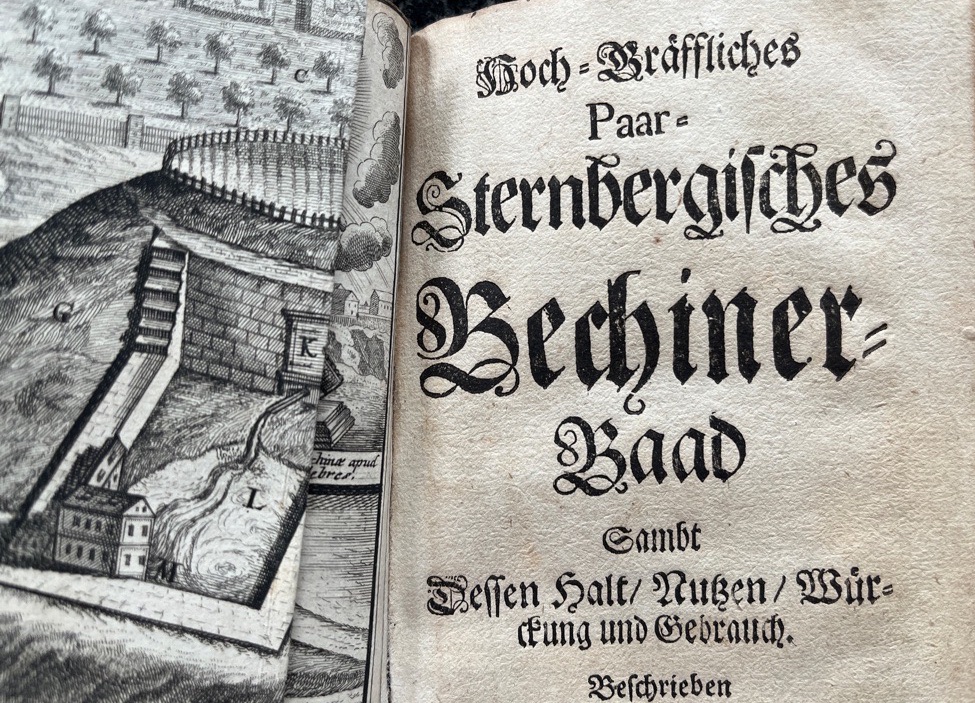 C
G
K
L
M
chinæ apud
ebres.
Hoch-Gräffliches
Paar-
Sternbergisches
Bechiner-
Baad
Sambt
Dessen Halt/ Nutzen/ Wür-
ckung und Gebrauch.
Beschrieben